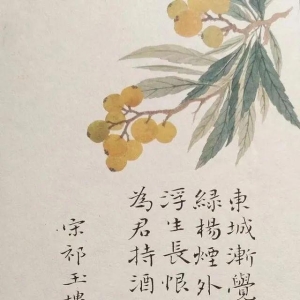 東城漸覺
綠楊煙外
浮生長恨
為君持酒
宋祁玉樓